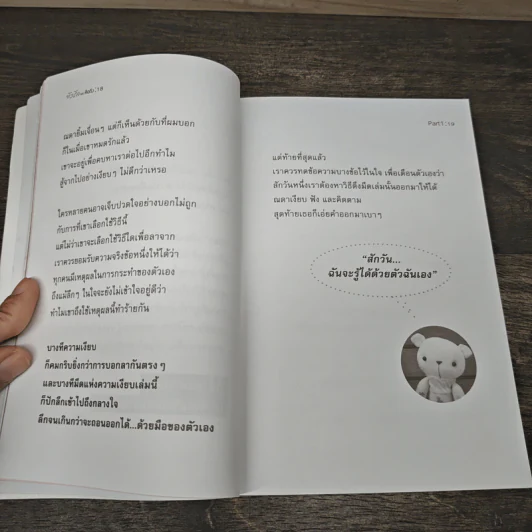 เงียบ : 18
ณดายิ้มเจื่อนๆ แต่ก็เห็นด้วยกับที่ผมบอก
ก็ในเมื่อเขาหมดรักแล้ว
เขาจะอยู่เพื่อคบหาเราต่อไปอีกทำไม
สู้จากไปอย่างเงียบๆ ไม่ดีกว่าเหรอ
ใครหลายคนอาจเจ็บปวดใจอย่างบอกไม่ถูก
กับการที่เขาเลือกใช้วิธีนี้
แต่ไม่ว่าเขาจะเลือกใช้วิธีใดเพื่อลาจาก
เราควรยอมรับความจริงข้อหนึ่งให้ได้ว่า
ทุกคนมีเหตุผลในการกระทำของตัวเอง
ถึงแม้ลึกๆ ในใจจะยังไม่เข้าใจอยู่ดีว่า
ทำไมเขาถึงใช้เหตุผลนี้ทำร้ายกัน
บางทีความเงียบ
ก็คมกริบยิ่งกว่าการบอกลากันตรง ๆ
และบางทีมีดแห่งความเงียบเล่มนี้
ก็ปักลึกเข้าไปถึงกลางใจ
ลึกจนเกินกว่าจะถอนออกได้...ด้วยมือของตัวเอง
Part 1 : 19
แต่ท้ายที่สุดแล้ว
เราควรทดข้อความบางข้อไว้ในใจ เพื่อเตือนตัวเองว่า
สักวันหนึ่งเราต้องหาวิธีดึงมีดเล่มนั้นออกมาให้ได้
ณดาเงียบ ฟัง และคิดตาม
สุดท้ายเธอก็เอ่ยคำออกมาเบาๆ
“สักวัน...
ฉันจะรู้ได้ด้วยตัวฉันเอง”